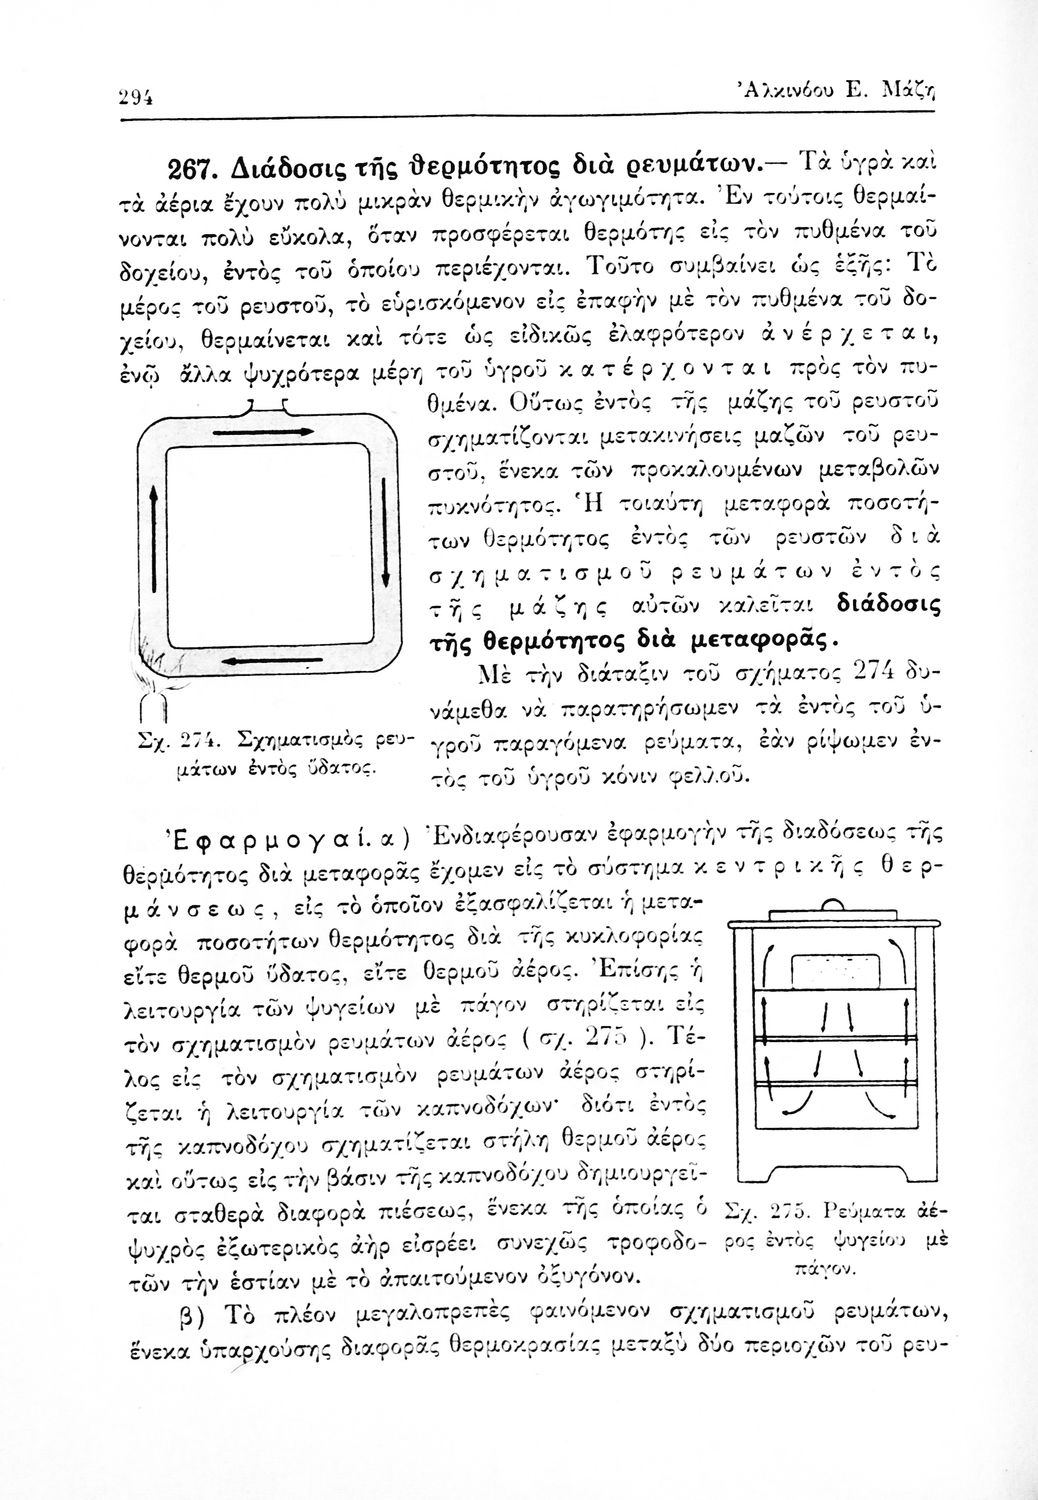 294
Ἀλκινόου Ε. Μάζη
267. Διάδοσις τῆς θερμότητος διὰ ρευμάτων.— Τὰ ὑγρὰ καὶ
τὰ ἀέρια ἔχουν πολὺ μικρὰν θερμικὴν ἀγωγιμότητα. Ἐν τούτοις θερμαί-
νονται πολὺ εὔκολα, ὅταν προσφέρεται θερμότης εἰς τὸν πυθμένα τοῦ
δοχείου, ἐντὸς τοῦ ὁποίου περιέχονται. Τοῦτο συμβαίνει ὡς ἑξῆς: Τὸ
μέρος τοῦ ρευστοῦ, τὸ εὑρισκόμενον εἰς ἐπαφὴν μὲ τὸν πυθμένα τοῦ δο-
χείου, θερμαίνεται καὶ τότε ὡς εἰδικῶς ἐλαφρότερον ἀνέρχεται,
ἐνῷ ἄλλα ψυχρότερα μέρη τοῦ ὑγροῦ κατέρχονται πρὸς τὸν πυ-
θμένα. Οὕτως ἐντὸς τῆς μάζης τοῦ ρευστοῦ
σχηματίζονται μετακινήσεις μαζῶν τοῦ ρευ-
στοῦ, ἕνεκα τῶν προκαλουμένων μεταβολῶν
πυκνότητος. Ἡ τοιαύτη μεταφορὰ ποσοτή-
των θερμότητος ἐντὸς τῶν ρευστῶν διὰ
σχηματισμοῦ ρευμάτων ἐντὸς
τῆς μάζης αὐτῶν καλεῖται διάδοσις
τῆς θερμότητος διὰ μεταφορᾶς.
Μὲ τὴν διάταξιν τοῦ σχήματος 274 δυ-
νάμεθα νὰ παρατηρήσωμεν τὰ ἐντὸς τοῦ ὑ-
γροῦ παραγόμενα ρεύματα, ἐὰν ρίψωμεν ἐν-
τὸς τοῦ ὑγροῦ κόνιν φελλοῦ.
Σχ. 274. Σχηματισμὸς ρευ-
μάτων ἐντὸς ὕδατος.
Ἐφαρμογαί. α) Ἐνδιαφέρουσαν ἐφαρμογὴν τῆς διαδόσεως τῆς
θερμότητος διὰ μεταφορᾶς ἔχομεν εἰς τὸ σύστημα κεντρικῆς θερ-
μάνσεως, εἰς τὸ ὁποῖον ἐξασφαλίζεται ἡ μετα-
φορὰ ποσοτήτων θερμότητος διὰ τῆς κυκλοφορίας
εἴτε θερμοῦ ὕδατος, εἴτε θερμοῦ ἀέρος. Ἐπίσης ἡ
λειτουργία τῶν ψυγείων μὲ πάγον στηρίζεται εἰς
τὸν σχηματισμὸν ρευμάτων ἀέρος ( σχ. 275 ). Τέ-
λος εἰς τὸν σχηματισμὸν ρευμάτων ἀέρος στηρί-
ζεται ἡ λειτουργία τῶν καπνοδόχων· διότι ἐντὸς
τῆς καπνοδόχου σχηματίζεται στήλη θερμοῦ ἀέρος
καὶ οὕτως εἰς τὴν βάσιν τῆς καπνοδόχου δημιουργεῖ-
ται σταθερὰ διαφορὰ πιέσεως, ἕνεκα τῆς ὁποίας ὁ
ψυχρὸς ἐξωτερικὸς ἀὴρ εἰσρέει συνεχῶς τροφοδο-
τῶν τὴν ἑστίαν μὲ τὸ ἀπαιτούμενον ὀξυγόνον.
Σχ. 275. Ρεύματα ἀέ-
ρος ἐντὸς ψυγείου μὲ
πάγον.
β) Τὸ πλέον μεγαλοπρεπὲς φαινόμενον σχηματισμοῦ ρευμάτων,
ἕνεκα ὑπαρχούσης διαφορᾶς θερμοκρασίας μεταξὺ δύο περιοχῶν τοῦ ρευ-